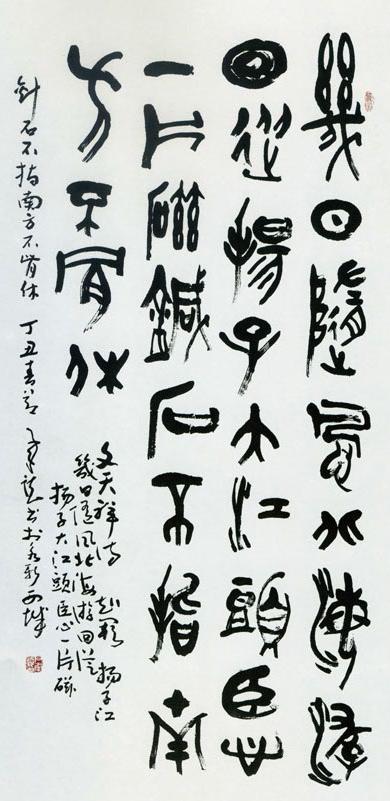 幾日隨風北海遊
回從揚子大江頭臣心
一片磁鍼石不指南
方不肯休
文天祥詩 揚子江
幾日隨風北海游回從
揚子大江頭臣心一片磁
針石不指南方不肯休 丁丑春節 書於永新